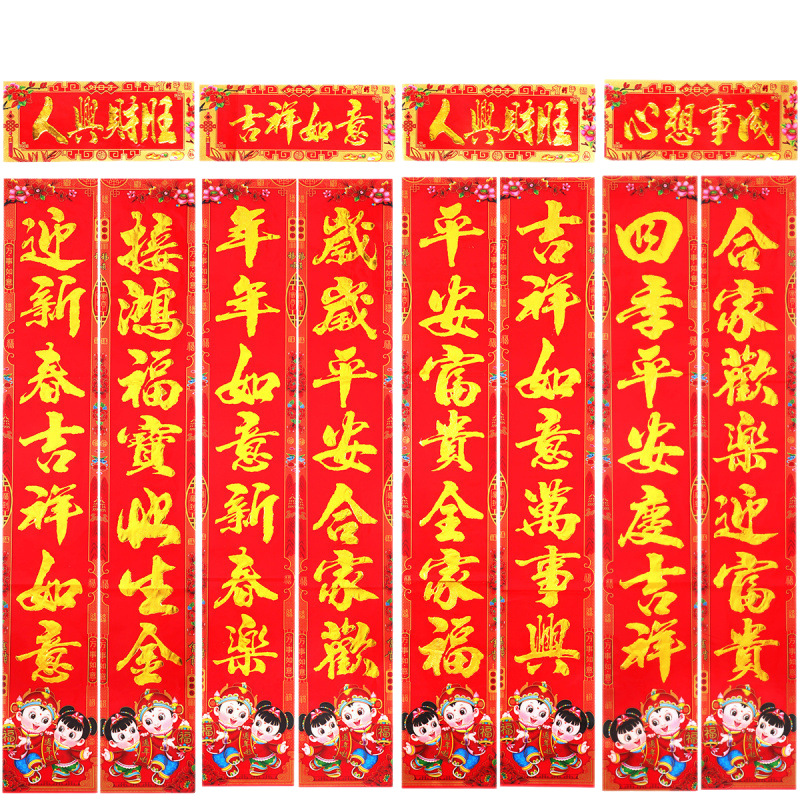 人興財旺
迎新春吉祥如意
接鴻福寶地生金
吉祥如意
年年如意新春樂
歲歲平安合家歡
人興財旺
平安富貴全家福
吉祥如意萬事興
心想事成
四季平安慶吉祥
合家歡樂迎富貴
万事如意
福